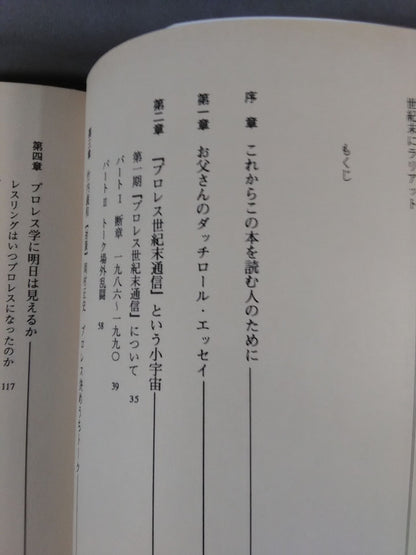 世紀末にラリアット
もくじ
序章 これからこの本を読む人のために
第一章 お父さんのダッチロール・エッセイ
第二章 『プロレス世紀末通信』という小宇宙
第一期『プロレス世紀末通信』について 35
パートⅠ 断章 一九八六〜一九九〇 39
パートⅡ トーク場外乱闘 58
第四章 プロレス学に明日は見えるか
レスリングはいつプロレスになったのか 117